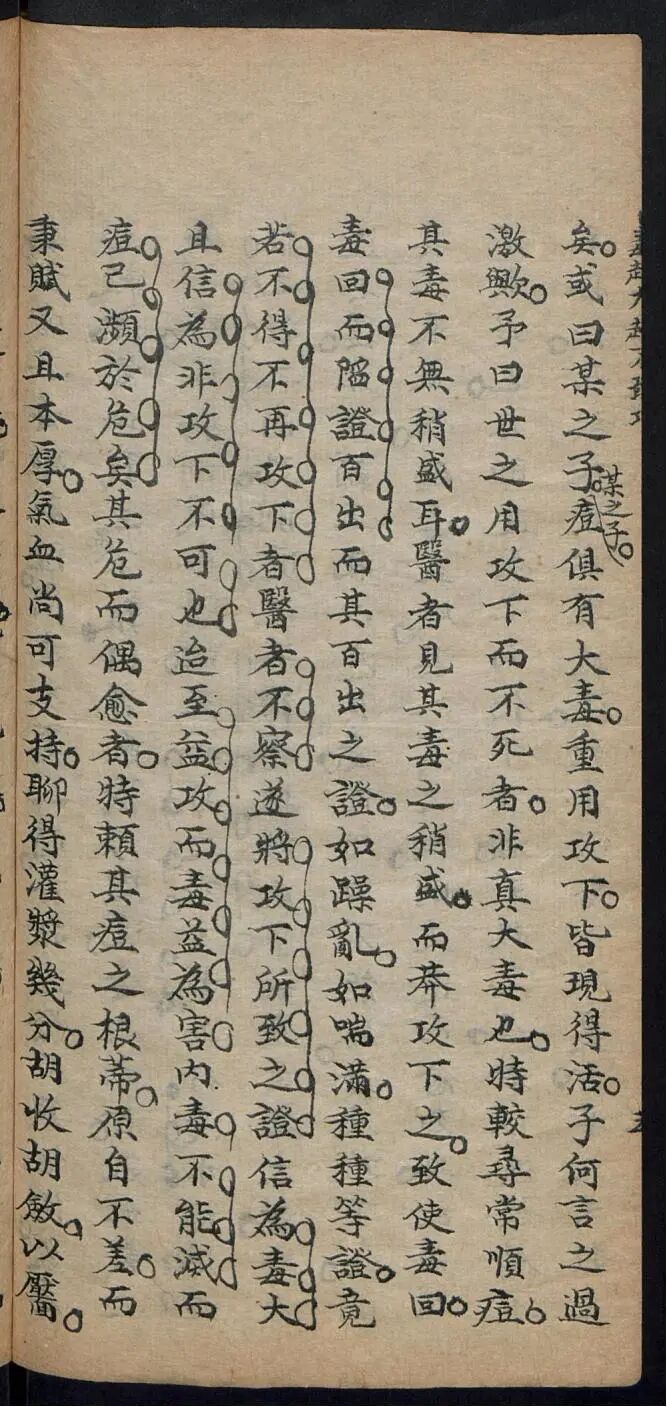 矣或曰某之子某之子痘俱有大毒重用攻下皆現得活子何言之過
激歟予曰世之用攻下而不死者非真大毒也特較尋常順痘
其毒不無稍盛耳醫者見其毒之稍盛而莽攻下之致使毒回
毒回而陷證百出而其百出之證如躁亂如喘滿種種等證竟
若不得不再攻下者醫者不察遂將攻下所致之證信為毒大
且信為非攻下不可也迨至益攻而毒益為害內毒不能滅而
痘已瀕於危矣其危而偶愈者特賴其痘之根蒂原自不差而
秉賦又且本厚氣血尚可支持聊得灌漿幾分胡收胡斂以靨